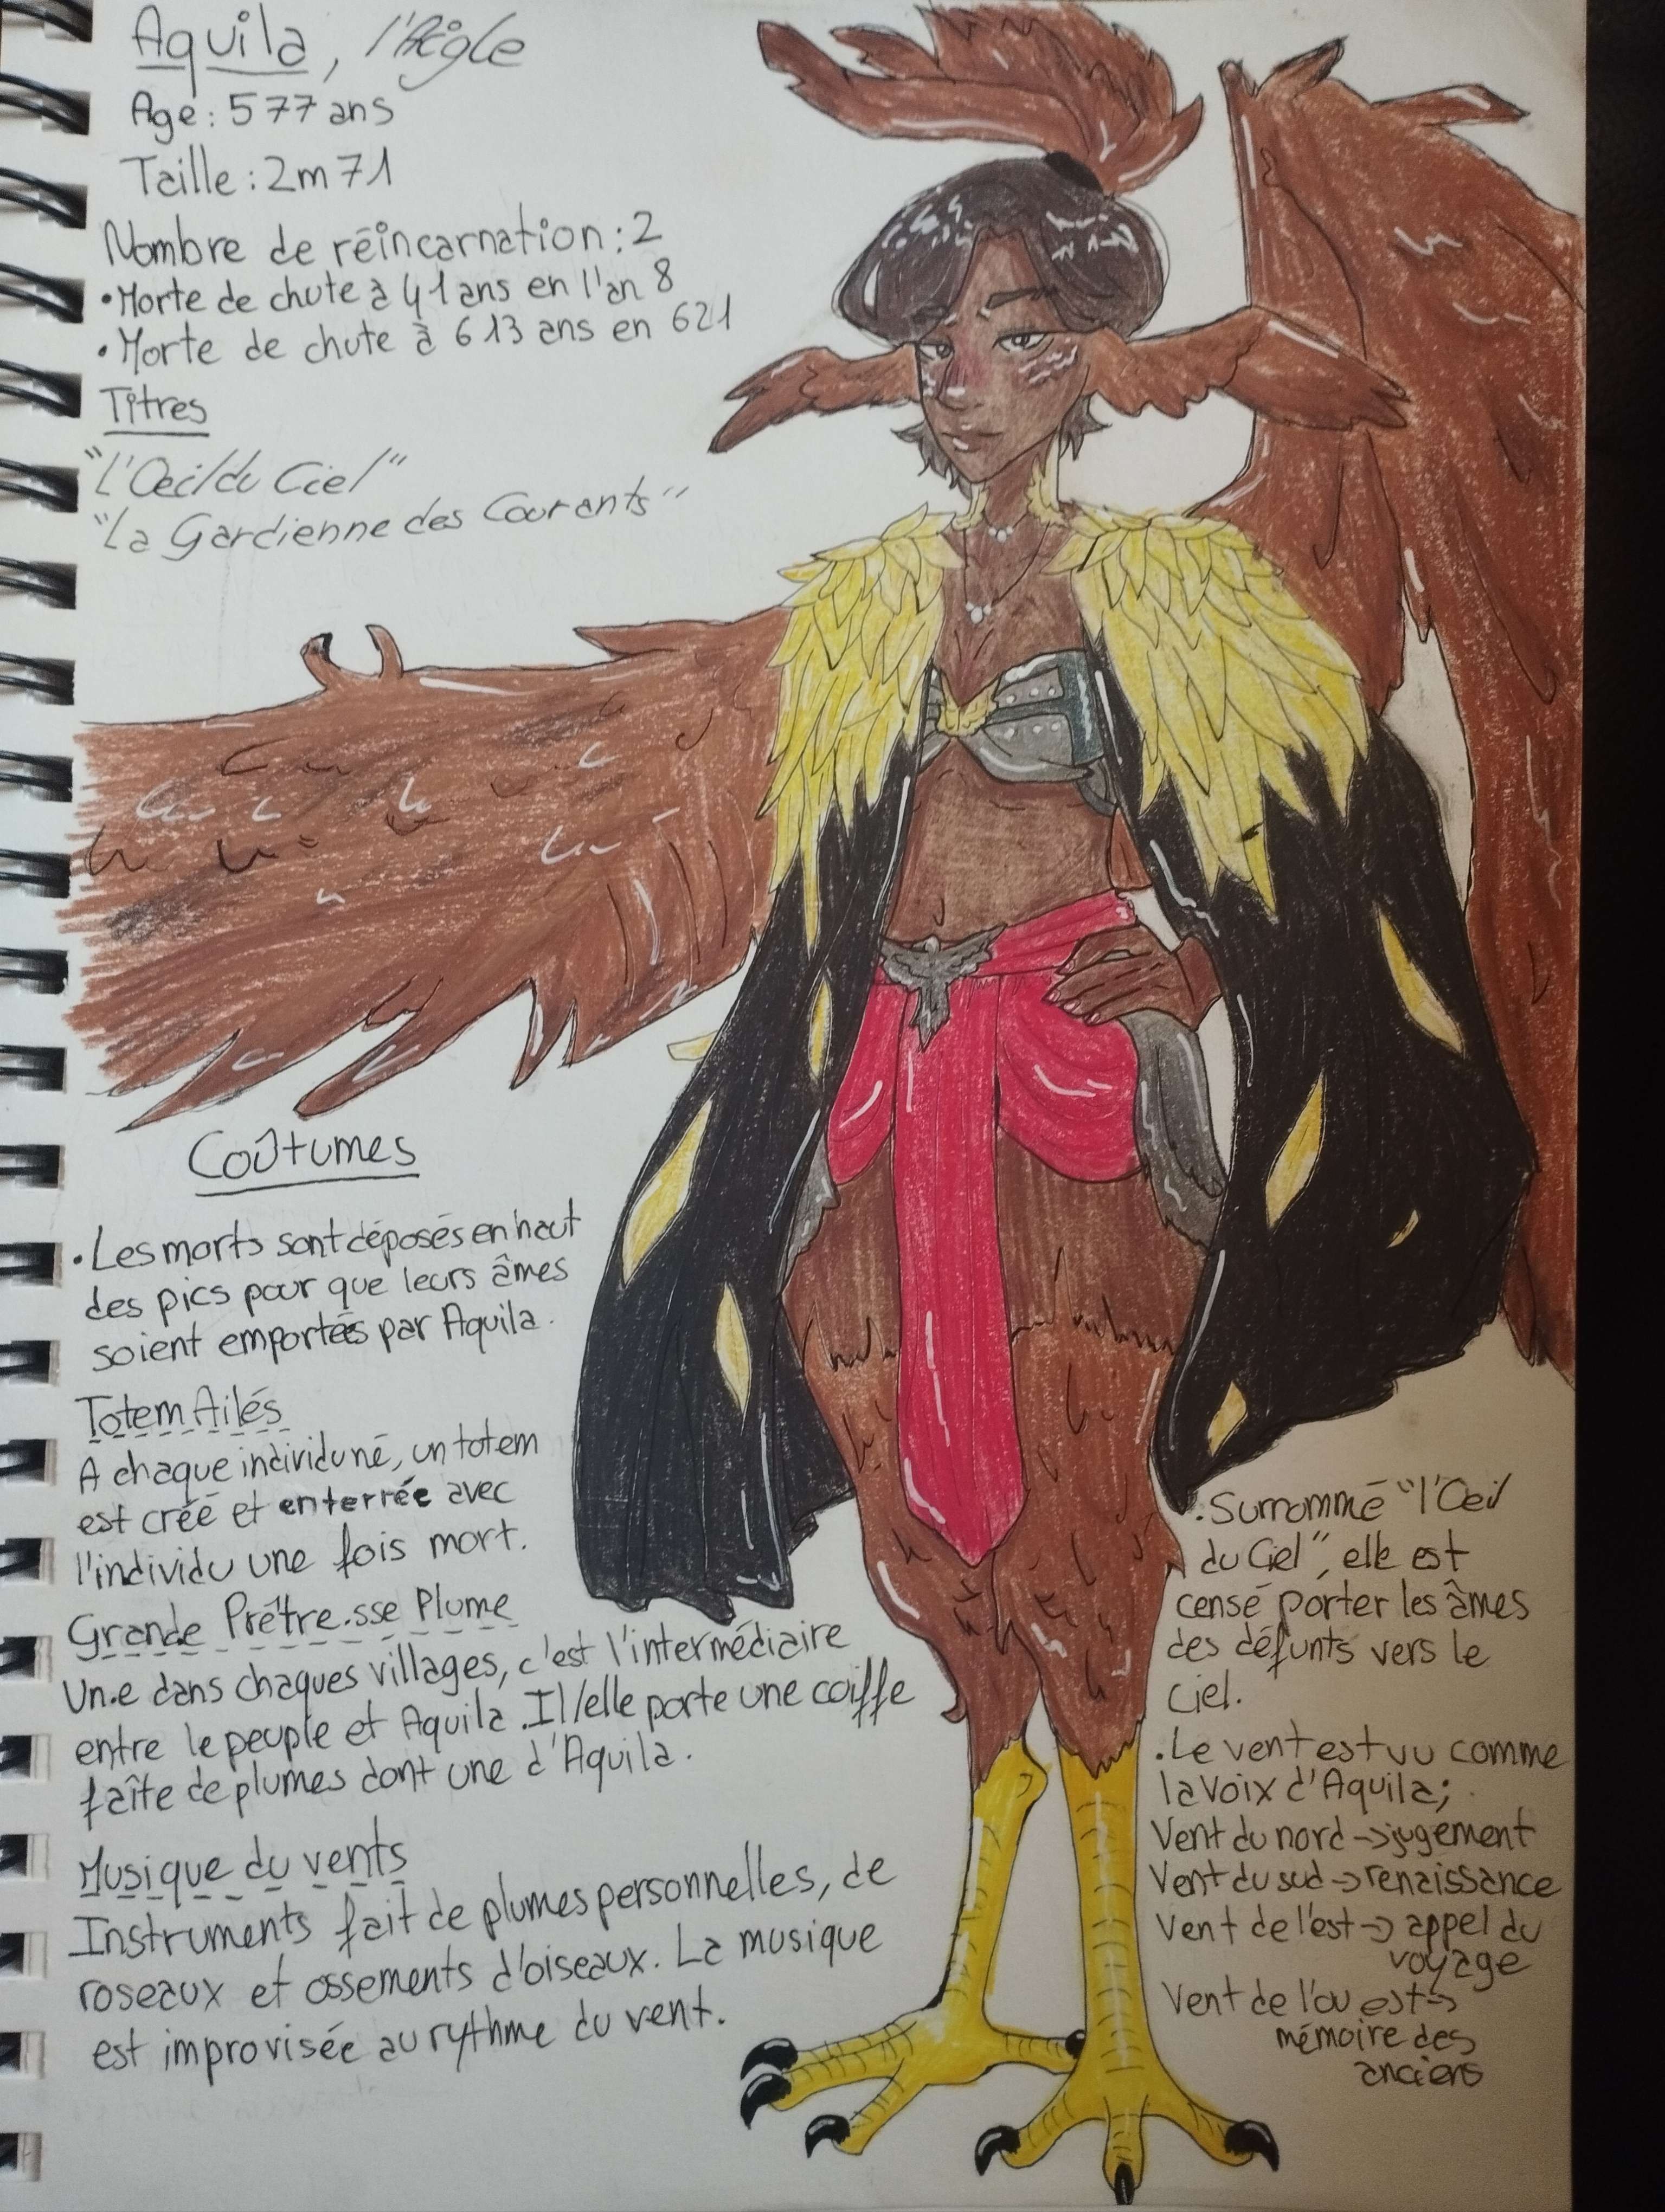 Aquila, l'Aigle
Age : 577 ans
Taille : 2m71
Nombre de réincarnation : 2
• Morte de chute à 41 ans en l'an 8
• Morte de chute à 613 ans en 621
Titres
"L'Oeil du Ciel"
"La Gardienne des Courants"
Coûtumes
• Les morts sont déposés en haut
des pics pour que leurs âmes
soient emportés par Aquila.
Totem Ailés
A chaque individu né, un totem
est créé et enterrée avec
l'individu une fois mort.
Grande Prêtre.sse Plume
Un.e dans chaques villages, c'est l'intermédiaire
entre le peuple et Aquila. Il/elle porte une coiffe
faîte de plumes dont une d'Aquila.
Musique du vents
Instruments fait de plumes personnelles, de
roseaux et ossements d'oiseaux. La musique
est improvisée au rythme du vent.
• Surnommé "l'Oeil
du Ciel", elle est
censé porter les âmes
des défunts vers le
ciel.
• Le vent est vu comme
la voix d'Aquila;
Vent du nord -> jugement
Vent du sud -> renaissance
Vent de l'est -> appel du
voyage
Vent de l'ouest ->
mémoire des
anciens